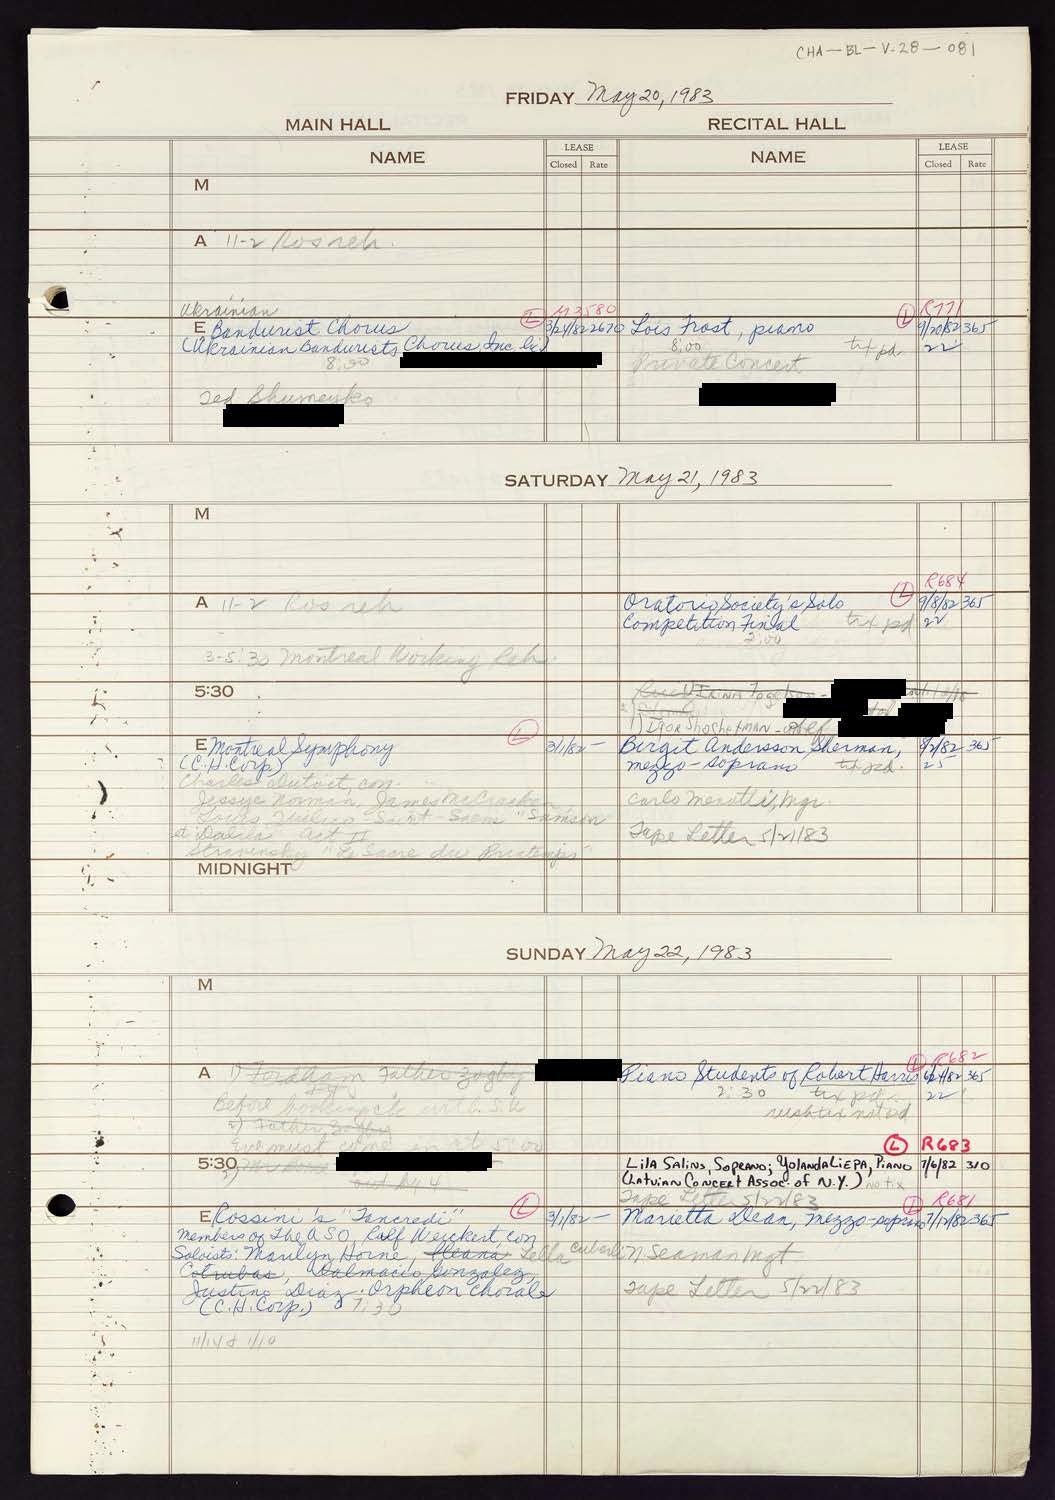 CHA-BL-V-28-081
FRIDAY May 20, 1983
MAIN HALL
RECITAL HALL
NAME
LEASE
Closed Rate
NAME
LEASE
Closed Rate
M
A 11-2 Ros reh.
Ukrainian
E Bandurist Chorus
(Ukrainian Bandurists Chorus, Inc.
8:00
Ted Shumeyko
L M3580
3/24/82 2670
L R771
Lois Frost, piano 9/20/82 365
8:00 tix pd 22
Private Concert
SATURDAY May 21, 1983
M
A 11-2 Ros reh
3-5:30 Montreal Working Reh.
L R684
Oratorio Society's Solo 9/8/82 365
Competition Finial tix pd 22
2:00
5:30
1) IGOR Shochetman
E Montreal Symphony L 3/1/82 -
(C.H. Corp.)
Charles Dutoit, con.
Jessye Norman, James McCracken
Louis Quilico Saint-Saens "Samson
et Dalila" Act II
Stravinsky "Le Sacre du Printemps"
Birgit Andersson Sherman, 8/2/82 365
mezzo-soprano tix pd.
Carlo Menotti, Mgr.
Tape Letter 5/21/83
MIDNIGHT
SUNDAY May 22, 1983
M
A 1) Fordham Father Zogby
Before booking ck with S.K
2) Father Zogby
Eve must come in at 5:00
L R682
Piano Students of Robert Harris 6/24/82 365
2:30 tix pd. 22
5:30
out
L R683
LILA SALINS, SOPRANO; YOLANDA LIEPA, PIANO 7/6/82 310
(LATVIAN CONCERT ASSOC. OF N.Y.) no tix
Tape Letter 5/22/83
E Rossini's "Tancredi" L 3/1/82 -
Members of the ASO, Ralf Weickert, con
Soloists: Marilyn Horne, Ileana Lella Cuberli
Cotrubas, Dalmacio Gonzalez,
Justino Diaz. Orpheon Chorale
(C.H. Corp.) 7:30
11/14 & 1/10
L R681
Marietta Dean, mezzo-soprano 365
N Seaman Mgt
Tape Letter 5/22/83